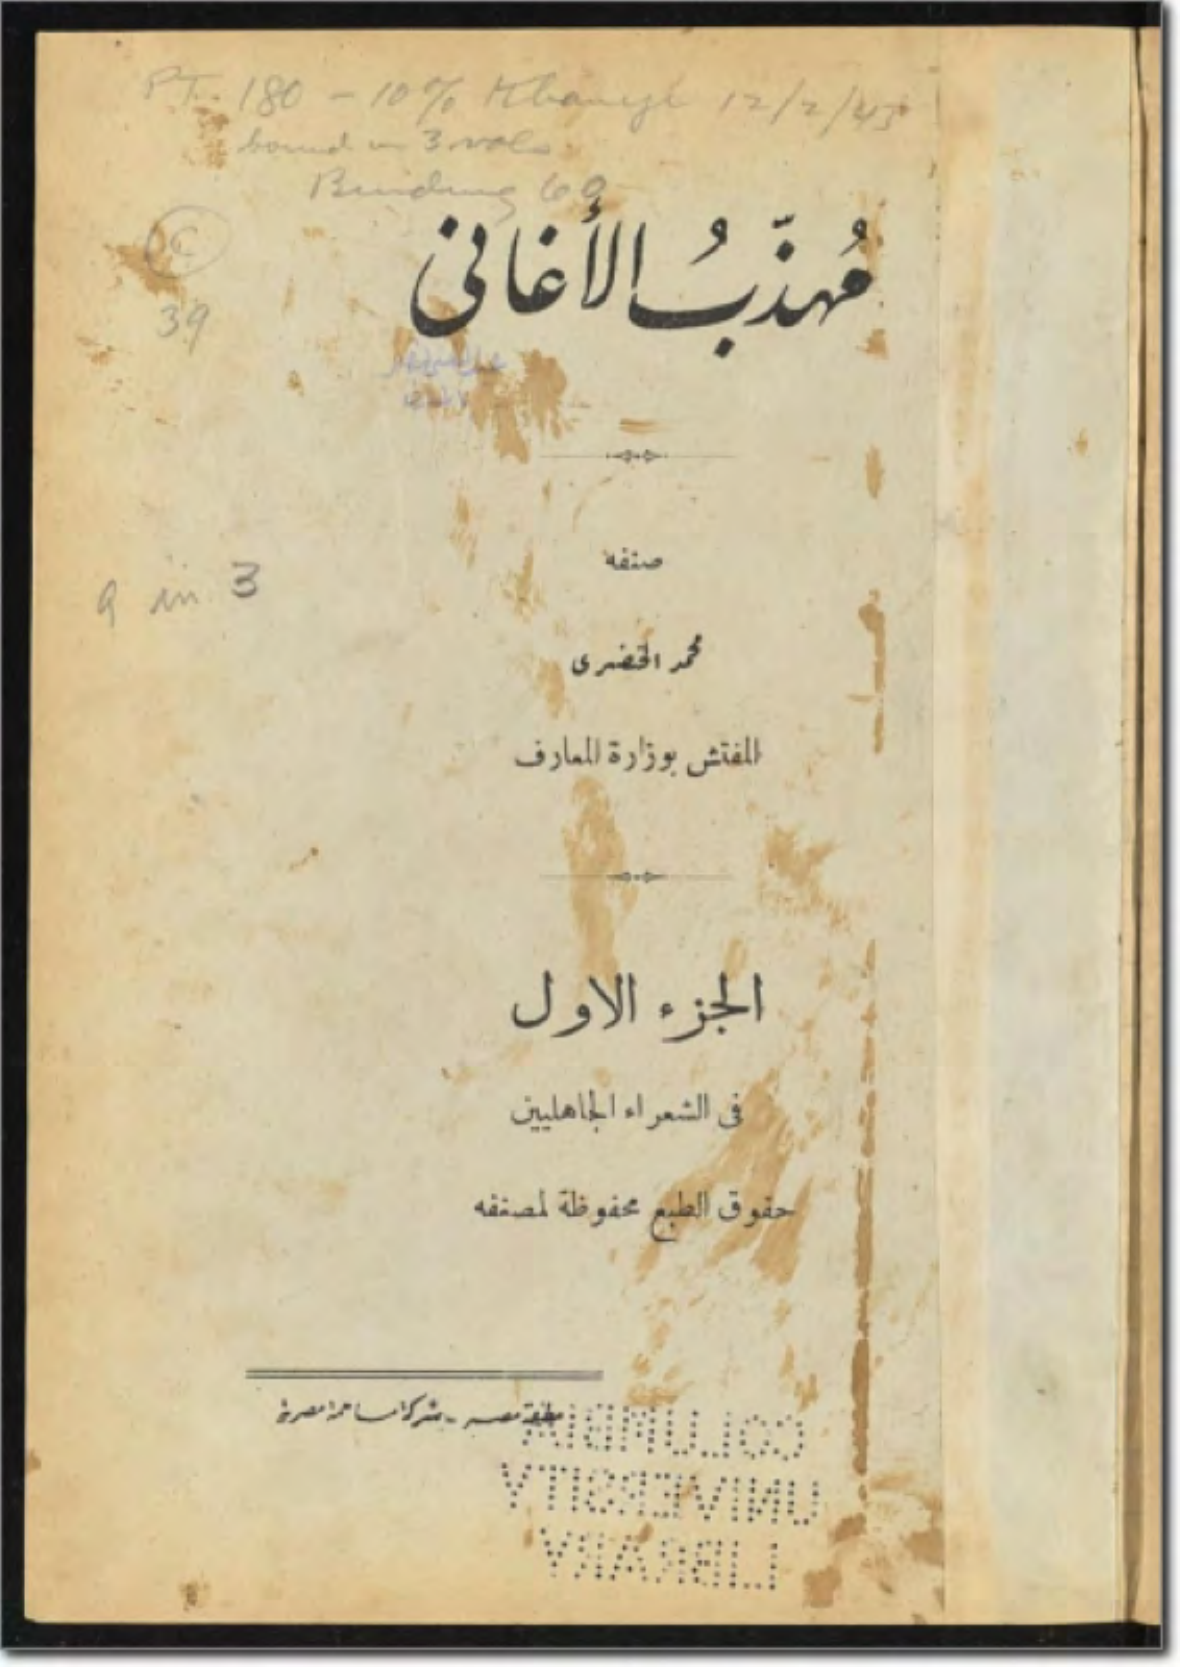 PT. 180 - 10% Khangi 12/2/45
bound in 3 vols
Binding 60
C
39
مُهذّبُ الأغانى
9 in 3
صنفه
محمد الخضرى
المفتش بوزارة المعارف
الجزء الاول
فى الشعراء الجاهليين
حقوق الطبع محفوظة لمصنفه
مطبعة مصر - شركة مساهمة مصرية
COLUMBIA
UNIVERSITY
LIBRARY